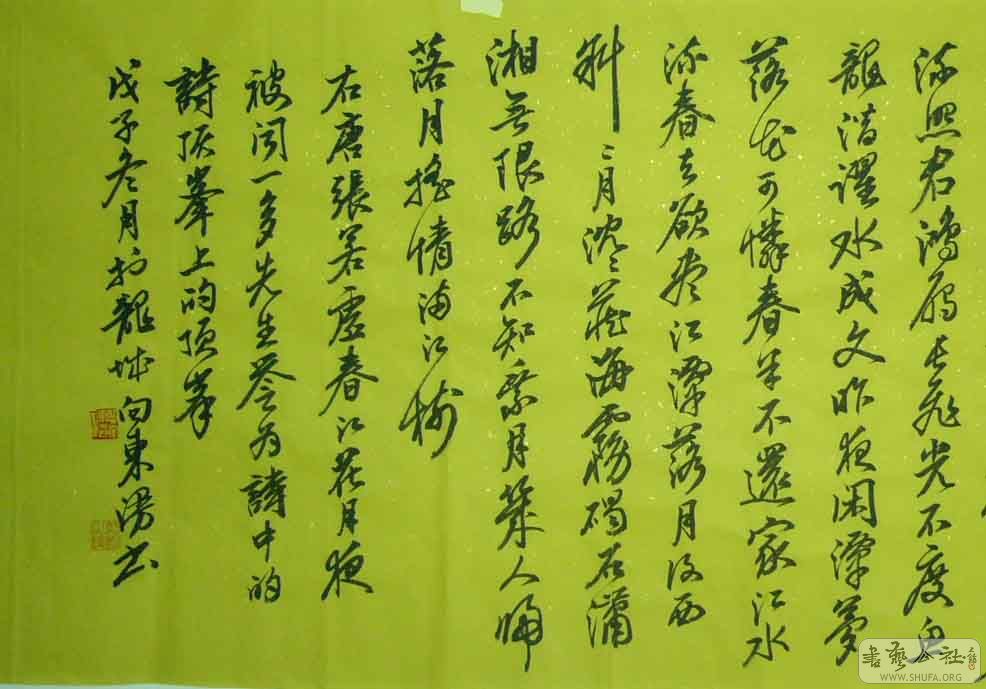 流照君鴻雁長飛光不度魚
龍潛躍水成文昨夜闲潭夢
落花可憐春半不還家江水
流春去欲尽江潭落月復西
斜〻月沉〻藏海霧碣石瀟
湘無限路不知乘月幾人歸
落月搖情滿江樹
右唐張若虛春江花月夜
被闻一多先生誉为詩中的
詩頂峯上的頂峯
戊子冬月於龍城向東湯书
書藝公社
WWW.SHUFA.ORG